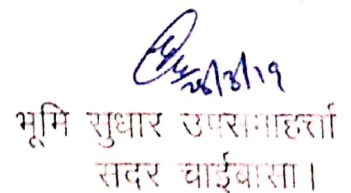 26/3/19
भूमि सुधार उपसमाहर्त्ता
सदर चाईबासा।